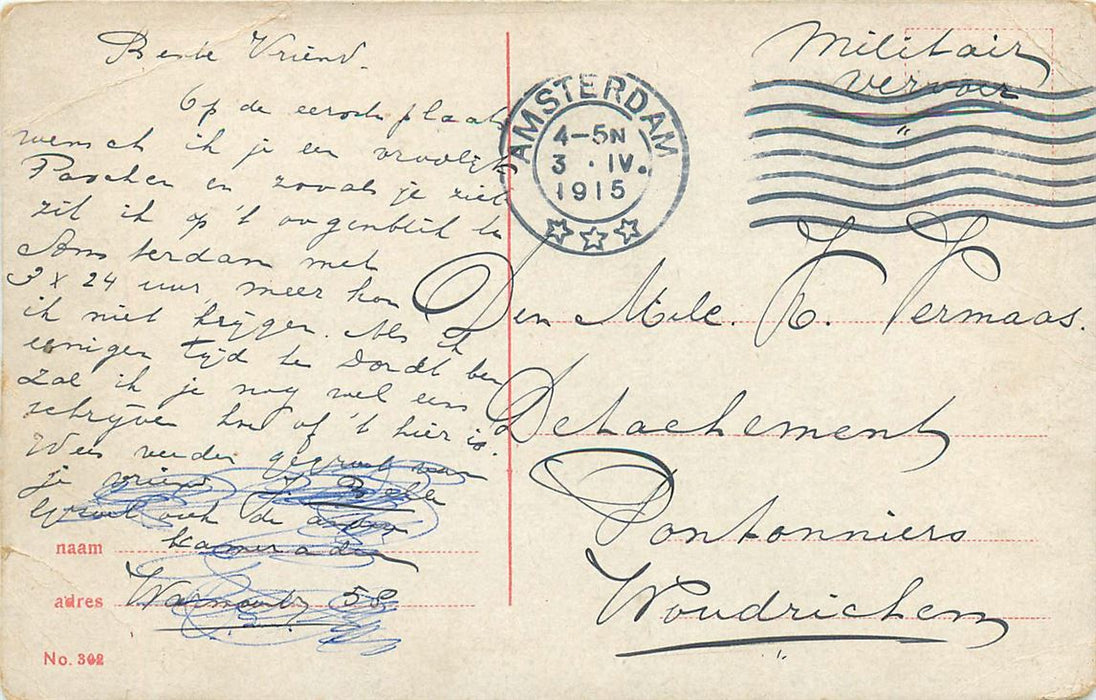 Beste Vriend.
Op de eerste plaats
wensch ik je een vroolijk
Paschen en zooals je ziet
zit ik op 't oogenblik te
Amsterdam met
3 x 24 uur, meer kon
ik niet krijgen. Als ik
eenigen tijd te Dordt ben
zal ik je nog wel eens
schrijven hoe of 't hier is.
Wees verder gegroet van
je vriend J.
Groet ook de andere
kameraden
naam
adres 58
No. 302
AMSTERDAM
4-5N
3 . IV.
1915
Militair
vervoer
Den Milc. H. Vermaas.
Detachement
Pontonniers
Woudrichem